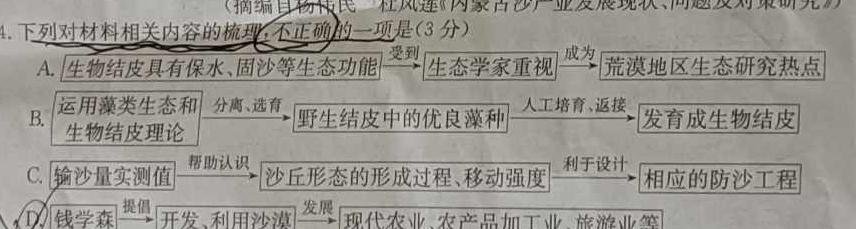 (摘编自杨伟民 杜凤莲《内蒙古沙产业发展现状、问题及对策研究》)
4.下列对材料相关内容的梳理,不正确的一项是(3分)
A. 生物结皮具有保水、固沙等生态功能 受到 生态学家重视 成为 荒漠地区生态研究热点
B. 运用藻类生态和生物结皮理论 分离、选育 野生结皮中的优良藻种 人工培育、返接 发育成生物结皮
C. 输沙量实测值 帮助认识 沙丘形态的形成过程、移动强度 利于设计 相应的防沙工程
D. 钱学森 提倡 开发、利用沙漠 发展 现代农业、农产品加工业、旅游业等